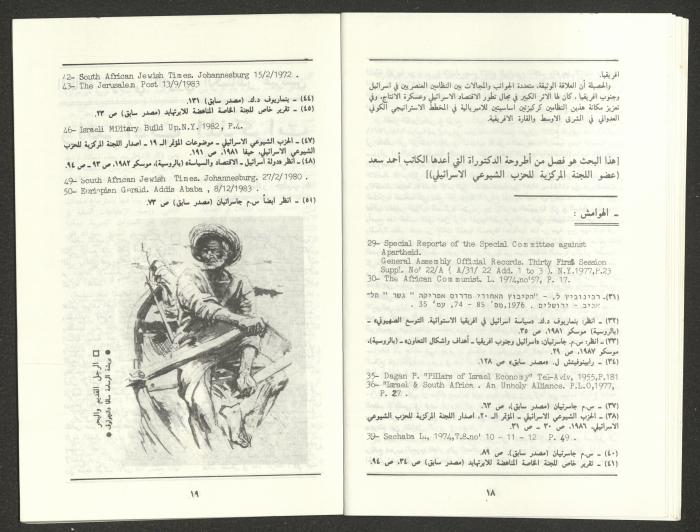 افريقيا.
والحصيلة أن العلاقة الوثيقة، متعددة الجوانب والمجالات بين النظامين العنصريين في اسرائيل
وجنوب افريقيا، كان لها الاثر الكبير في مجال تطور الاقتصاد الاسرائيلي وعسكرة الانتاج، وفي
تعزيز مكانة هذين النظامين كركيزتين اساسيتين للامبريالية في المخطط الاستراتيجي الكوني
العدواني في الشرق الاوسط والقارة الافريقية.
[هذا البحث هو فصل من أطروحة الدكتوراة التي أعدها الكاتب أحمد سعد
(عضو اللجنة المركزية للحزب الشيوعي الاسرائيلي)]
ـ الهوامش :
29- Special Reports of the Special Committee against
Apartheid.
General Assembly Official Records. Thirty First Session
Suppl. No' 22/A ( A/31/ 22 Add. 1 to 3 ). N.Y.1977,P.23
30- The African Communist. L. 1974,no'57, P. 17.
(٣١)ـ רבינוביץ ל. - "הקיבוץ האחורי מדרום אפריקה " גשר " תל-
אביב - ירושלים . 1976,מס' 85 - 74, עמ' 35 .
(٣٢) ـ انظر: بنماريوف د.ك. «سياسة اسرائيل في افريقيا الاستوائية. التوسع الصهيوني» ـ
(بالروسية) موسكو ١٩٨١، ص ٣٥.
(٣٣) ـ انظر: س.م. جاسرتيان: «اسرائيل وجنوب افريقيا ـ أهداف واشكال التعاون» ـ (بالروسية)،
موسكو ١٩٨٧، ص ٢٩.
(٣٤) ـ رابينوفيتش ل. «مصدر سابق» ص ١٢٨.
35- Dagan P. "Pillars of Israel Economy" Tel-Aviv, 1955,P.181
36- "Israel & South Africa . An Unholy Alliance. P.L.O,1977,
P. 27 .
(٣٧) ـ س.م جاسرتيان (مصدر سابق)، ص ٦٣.
(٣٨) ـ الحزب الشيوعي الاسرائيلي ـ المؤتمر الـ ٢٠، اصدار اللجنة المركزية للحزب الشيوعي
الاسرائيلي، ١٩٨٦، ص ٣٠ ـ ٣١.
39- Sechaba L., 1974,7.8.no' 10 - 11 - 12 P. 49 .
(٤٠) ـ س.م جاسرتيان (مصدر سابق) ص ٨٩.
(٤١) ـ تقرير خاص للجنة الخاصة المناهضة للابرتهايد (مصدر سابق) ص ٣٤، ص ٩٤.
١٨
42- South African Jewish Times. Johannesburg 15/2/1972 .
43- The Jerusalem Post 13/9/1983
(٤٤) ـ بنماريوف د.ك. (مصدر سابق) ١٣١.
(٤٥) ـ تقرير خاص للجنة الخاصة المناهضة للابرتهايد (مصدر سابق) ص ٢٣.
46- Israeli Military Build Up.N.Y. 1982, P.4.
(٤٧) ـ الحزب الشيوعي الاسرائيلي ـ موضوعات المؤتمر الـ ١٩ ـ اصدار اللجنة المركزية للحزب
الشيوعي الاسرائيلي، حيفا ١٩٨١، ص ١٩١.
(٤٨) ـ انظر «دولة اسرائيل ـ الاقتصاد والسياسة» (بالروسية)، موسكو ١٩٨٢، ص ٩٣ ـ ص ٩٤.
49- South African Jewish Times. Johannesburg. 27/2/1980 .
50- Euriopian Gerald. Addis Ababa , 8/12/1983 .
(٥١) ـ انظر ايضاً س.م جاسراتيان (مصدر سابق) ص ٧٣.
□ الرجل القديم والبحر
● بريشة الرسامة
١٩